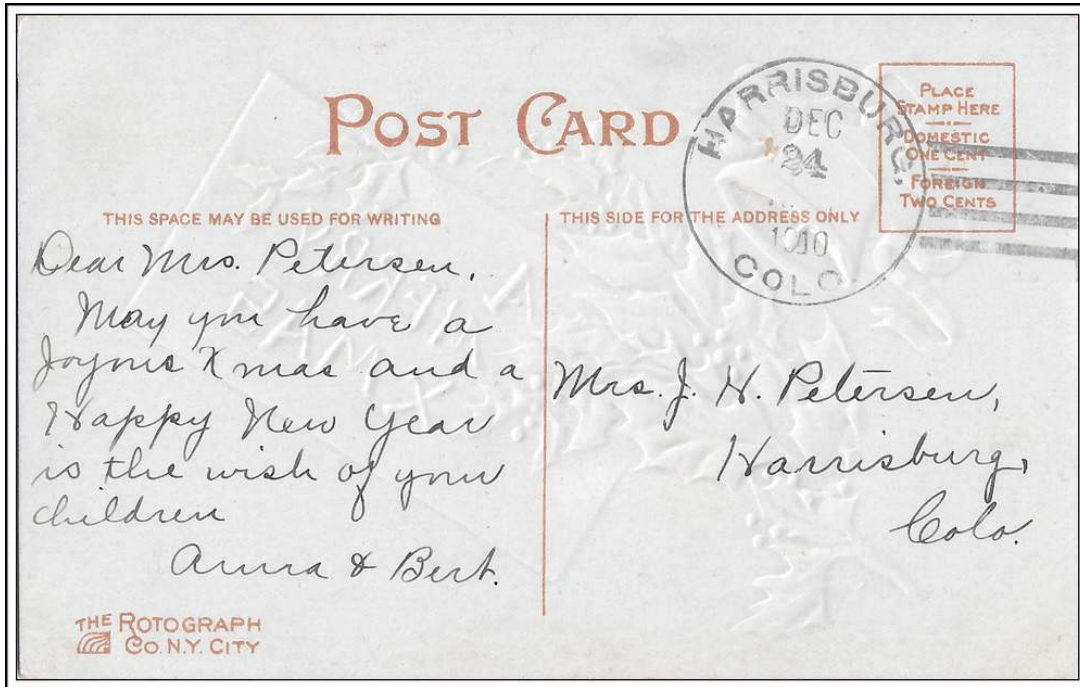 POST CARD
HARRISBURG,
DEC
24
1910
COLO.
PLACE
STAMP HERE
DOMESTIC
ONE CENT
FOREIGN
TWO CENTS
THIS SPACE MAY BE USED FOR WRITING
THIS SIDE FOR THE ADDRESS ONLY
Dear Mrs. Petersen,
May you have a
Joyous Xmas and a
Happy New Year
is the wish of your
children
Anna & Bert.
Mrs. J. H. Petersen,
Harrisburg,
Colo.
THE ROTOGRAPH
CO. N.Y. CITY